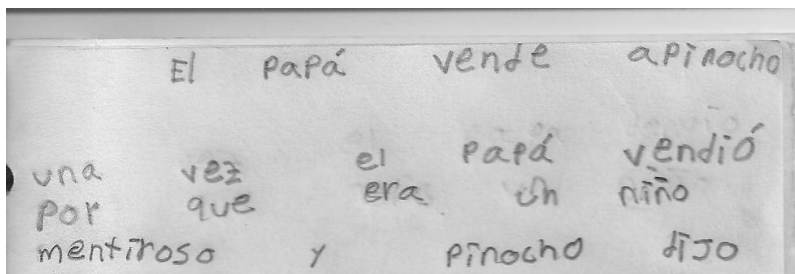 El papá vende apinocho
una vez el papá vendió
por que era un niño
mentiroso y pinocho dijo